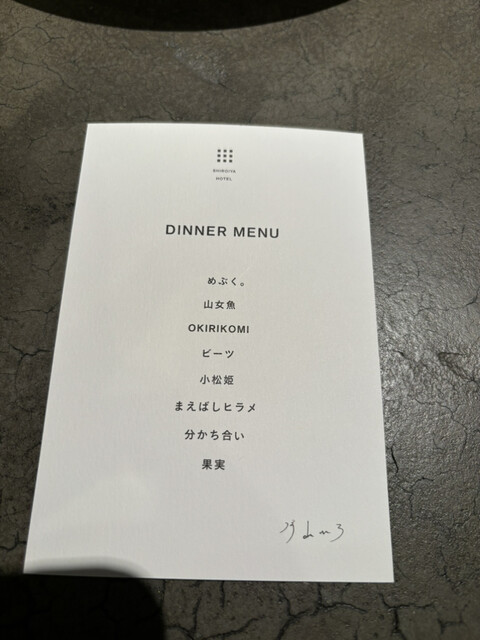 SHIROIYA
HOTEL
DINNER MENU
めぶく。
山女魚
OKIRIKOMI
ビーツ
小松姫
まえばしヒラメ
分かち合い
果実